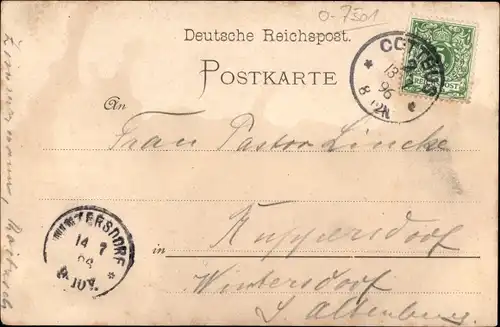 0-7501
Deutsche Reichspost.
POSTKARTE
COTTBUS
13 7
96
8-9N.
REICHSPOST
An
Frau Pastor Lincke
in
Ruppersdorf
Wintersdorf
S. Altenburg
WINTERSDORF
14 7
96
Zimmermann,